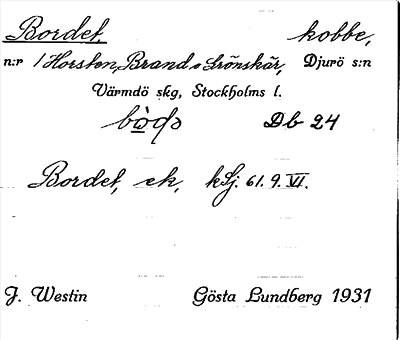 Bordet, kobbe,
n:r 1 Horsten, Brand o Grönskär, Djurö s:n
Värmdö skg, Stockholms l.
Db 24
Bordet, ek, kSj. 61. 9. VI.
J. Westin Gösta Lundberg 1931